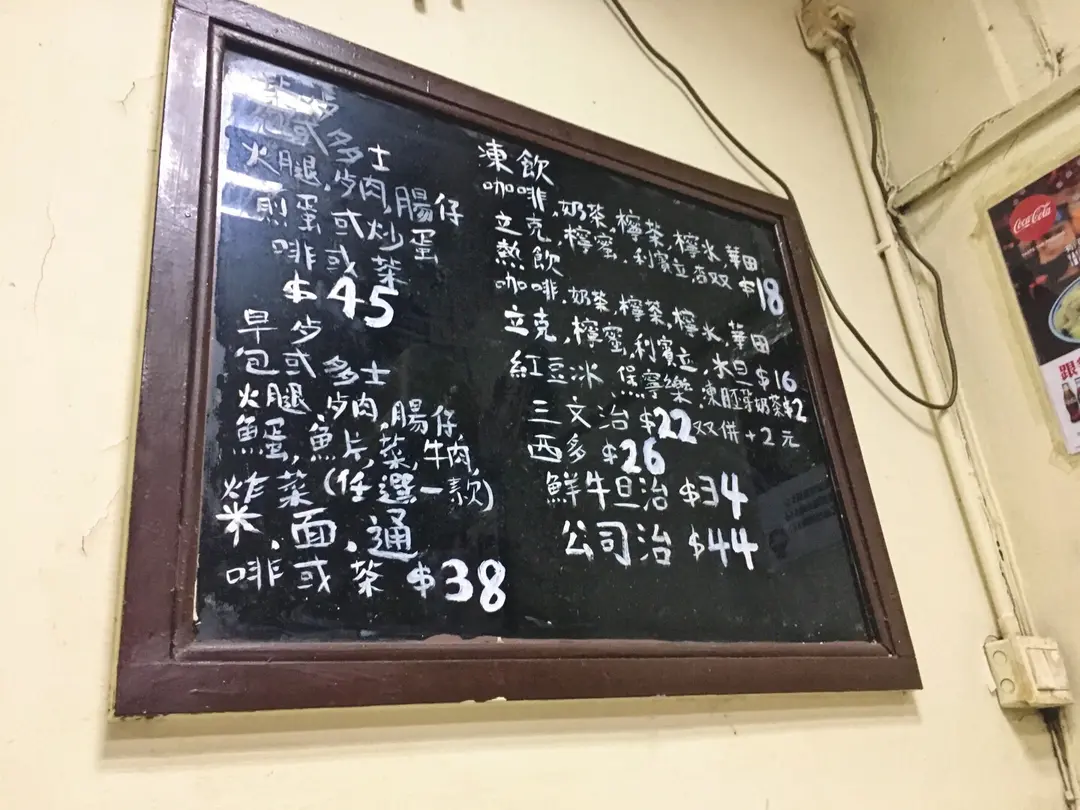 或多士
火腿,歺肉,腸仔
煎蛋或炒蛋
啡或茶
$45
早歺
包或多士
火腿,歺肉,腸仔
魚蛋,魚片,菜,牛肉,
炸菜(任選一款)
米、面、通
啡或茶 $38
凍飲
咖啡,奶茶,檸茶,檸水,華田
立克,檸蜜,利賓立,杏双 $18
熱飲
咖啡,奶茶,檸茶,檸水,華田
立克,檸蜜,利賓立,水旦 $16
紅豆冰,保寧樂,凍胚芽奶茶$2
三文治 $22 双併+2元
西多 $26
鮮牛旦治 $34
公司治 $44
Coca-Cola
跟